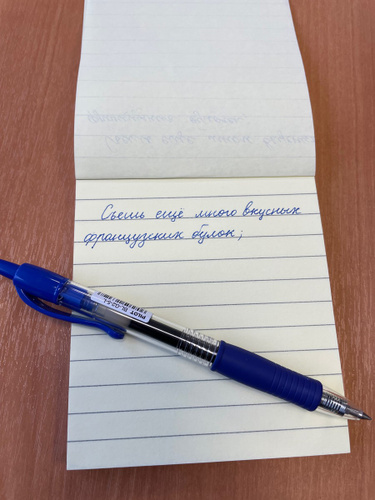 Съешь ещё много вкусных
французских булок;
PILOT BL-G2-5-L